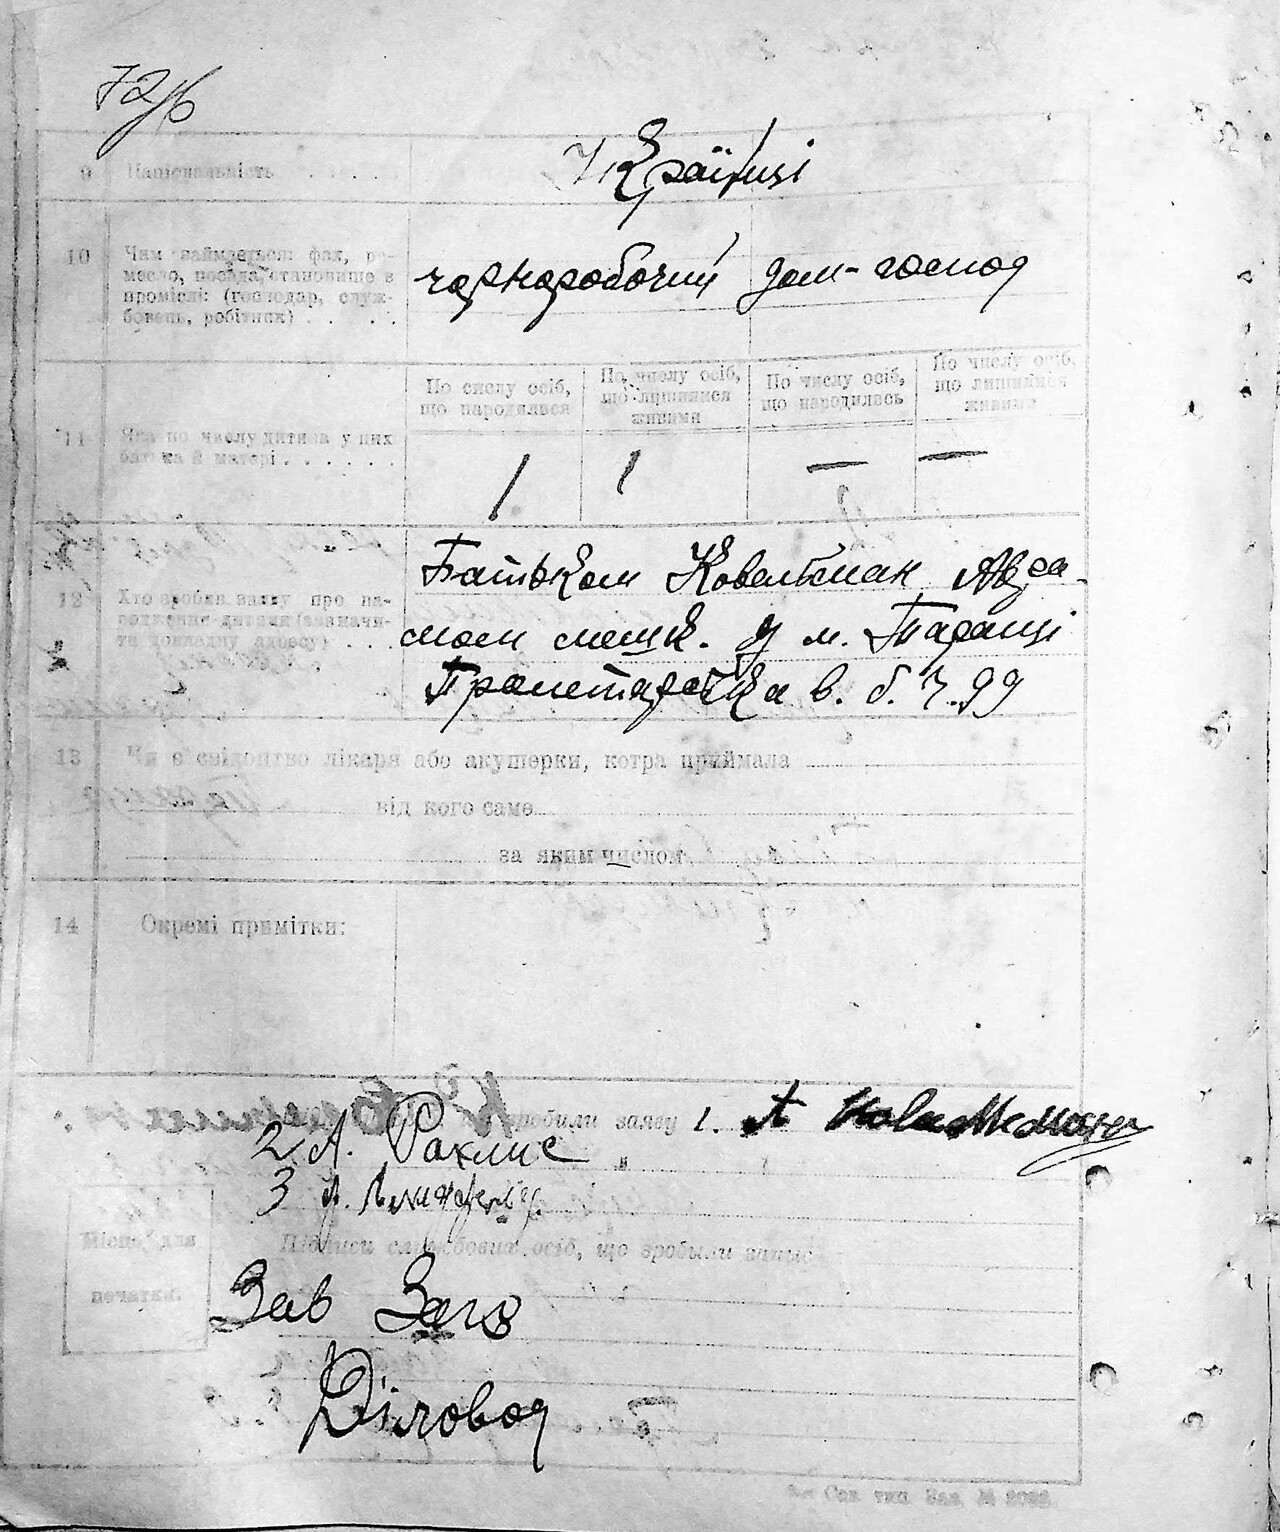 72/б
9 Національність . . . .
Українці
10 Чим займається: фах, ре-
месло, посада, становище в
промислі: (господар, служ-
бовець, робітник) . . . .
чорноробочий дом-господ
По числу осіб,
що народилися
По числу осіб,
що лишилися
живими
По числу осіб,
що народилась
По числу осіб,
що лишилися
живими
11 Яка по числу дитина у цих
батька й матері . . . . . .
1 1 — —
12 Хто зробив заяву про на-
родження дитини (зазначи-
ти докладну адресу) . . .
Батьком Ковельман Авра-
мом мешк. у м. Таращі
Пролетарська в. б. ч. 99
13 Чи є свідоцтво лікаря або акушерки, котра приймала
від кого саме
за яким числом
14 Окремі примітки:
зробили заяву 1. А
2 А. Рахлис "
3
Підписи службових осіб, що зробили запис
Місце для
печатки.
Зав Загз
Діловод